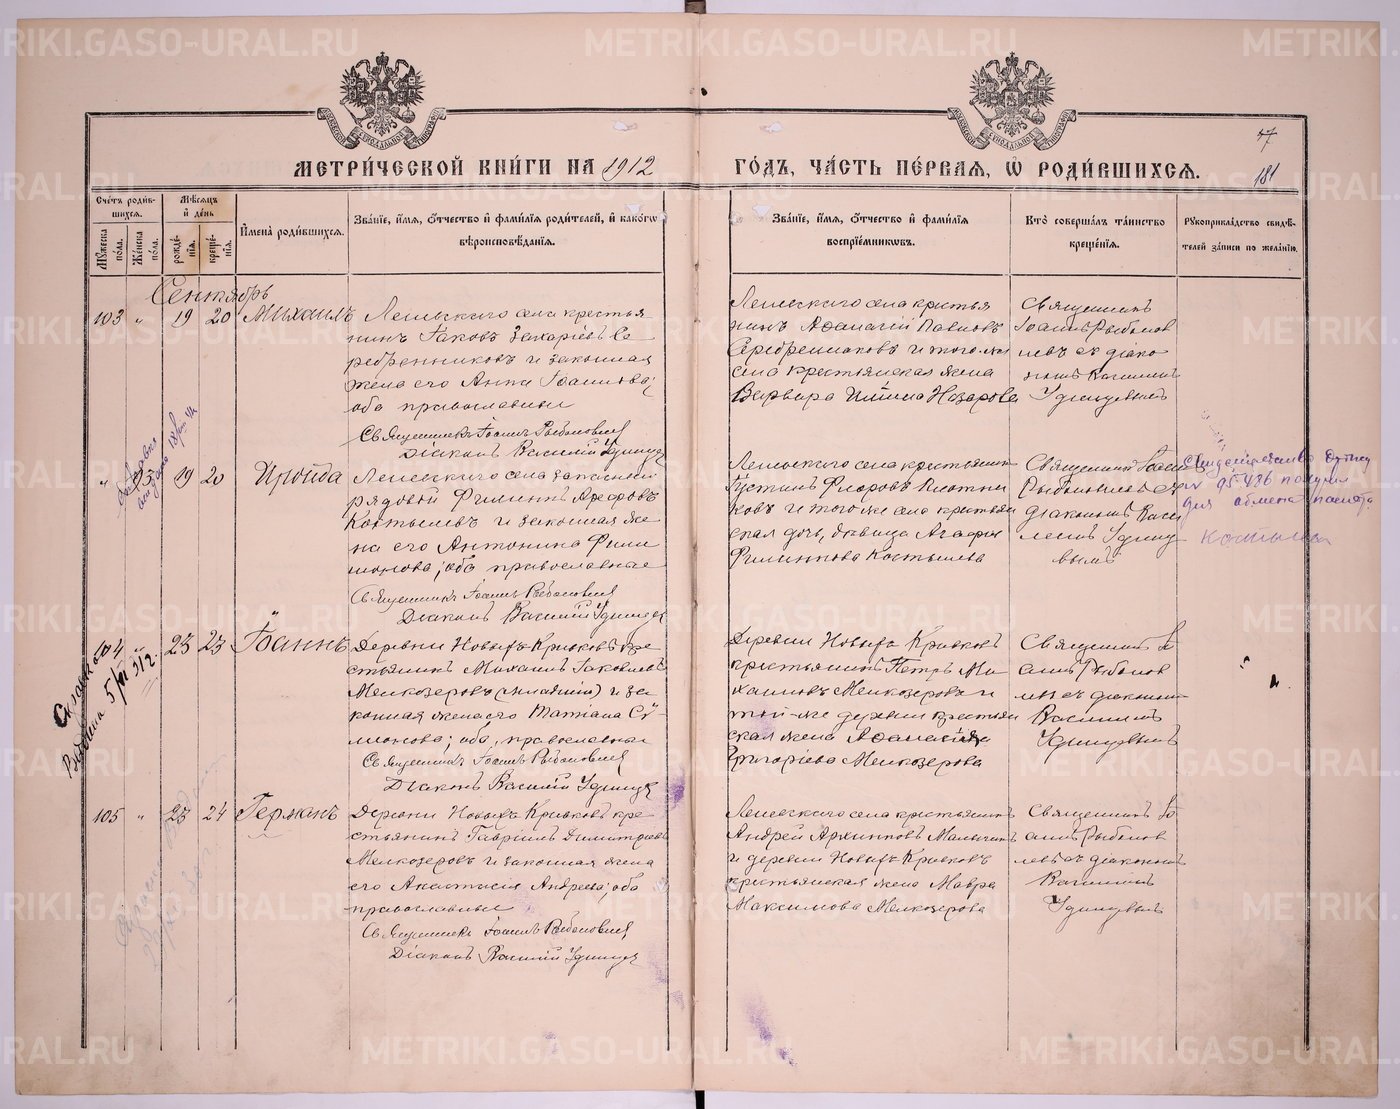 МЕТРИ́ЧЕСКОЙ КНИ́ГИ НА 1912
ГО́ДЪ, ЧА́СТЬ ПЕ́РВАЯ, Ѽ РОДИ́ВШИХСЯ.
47
181
Сче́тъ роди́в-
шихся.
Мѣ́сяцъ
и҆ де́нь
Мꙋ́жеска по́ла.
Же́нска по́ла.
рожде́нїя.
креще́нїя.
И҆мена̀ роди́вшихся.
Зва́нїе, и҆́мя, ѻ҆́тчество и҆ фами́лїя роди́телей, и҆ какѡ́гѡ
вѣроисповѣ́данїя.
Зва́нїе, и҆́мя, ѻ҆́тчество и҆ фами́лїя
воспрїе́мникѡвъ.
Кто̀ соверша́лъ та́инство
креще́нїя.
Рꙋкоприкла́дство свидѣ́-
телей за́писи по жела́нїю.
Сентябрь
103 " 19 20 Михаилъ
села крестья
нинъ Іаковъ Захаріевъ Се
ребренниковъ и законная
жена его Анна Іоаннова;
оба православные
Священникъ Іоаннъ Рыболовлевъ
Діаконъ Василій Удинцевъ
села крестья
нинъ Аѳанасій Павловъ
Серебренниковъ и того же
села крестьянская жена
Варвара Ильина Назарова
Священникъ
Іоаннъ Рыболов
левъ съ діако
номъ Василіемъ
Удинцевымъ
" 95 19 20 Ираида
села запасный
рядовой Филиппъ
Костылевъ и законная же
на его Антонина Фили
монова; оба православные
Священникъ Іоаннъ Рыболовлевъ
Діаконъ Василій Удинцевъ
села крестьянинъ
Іустинъ Флоровъ Плотни
ковъ и того же села крестьян
ская дочь, дѣвица Агафія
Филиппова Костылева
Священникъ Іоаннъ
Рыболовлевъ съ
діакономъ Васи
ліемъ Удинце
вымъ
получил
для обмена
23 23 Іоаннъ
Деревни Новыхъ Кривковъ кре
стьянинъ Михаилъ Іаковлевъ
Мелкозеровъ (младшій) и за
конная жена его Татіана Си-
меонова; оба православные
Священникъ Іоаннъ Рыболовлевъ
Діаконъ Василій Удинцевъ
Деревни Новыхъ Кривковъ
крестьянинъ Петръ Ми
хаиловъ Мелкозеровъ и
той-же деревни крестьян
ская жена Аѳанасія
Григоріева Мелкозерова
Священникъ Іо
аннъ Рыболов
левъ съ діакономъ
Василіемъ
Удинцевымъ
105 " 23 24 Германъ
Деревни Новыхъ Кривковъ кре
стьянинъ Гавріилъ Димитріевъ
Мелкозеровъ и законная жена
его Анастасія Андреева; оба
православные
Священникъ Іоаннъ Рыболовлевъ
Діаконъ Василій Удинцевъ
села крестьянинъ
Андрей Архиповъ
и деревни Новыхъ Кривковъ
крестьянская жена Мавра
Максимова Мелкозерова
Священникъ Іо
аннъ Рыболов
левъ съ діакономъ
Василіемъ
Удинцевымъ
METRIKI.GASO-URAL.RU